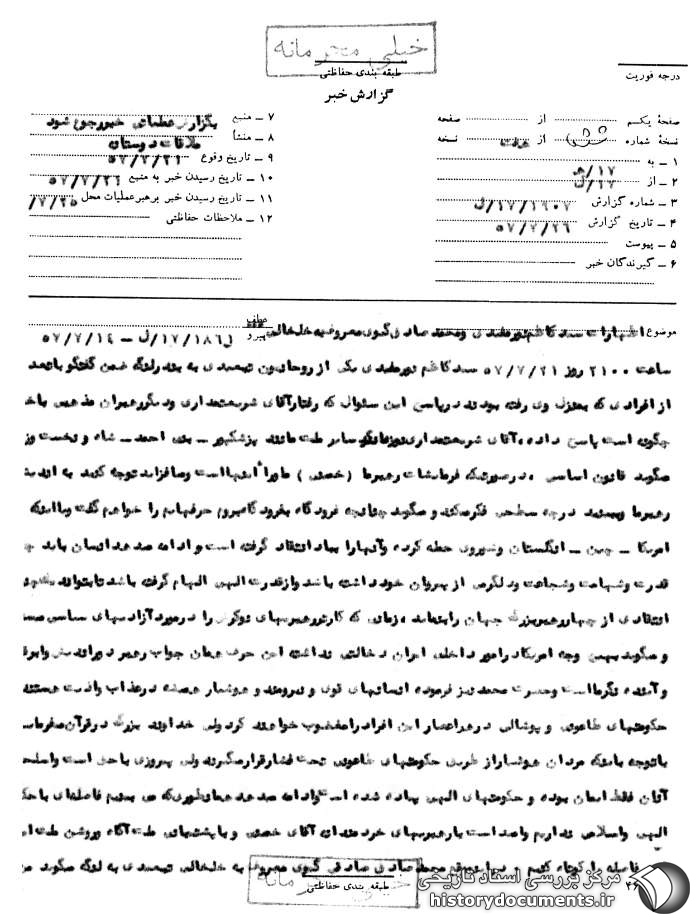 خیلی محرمانه
طبقه بندی حفاظتی
گزارش خبر
درجه فوریت
صفحهٔ یکم از صفحه
نسخهٔ شماره از نسخه
۱ ـ به ۱۷/ه
۲ ـ از ۱۷/ل
۳ ـ شماره گزارش ۱۷/۱۶۰۷/ل
۴ ـ تاریخ گزارش ۵۷/۷/۲۶
۵ ـ پیوست
۶ ـ گیرندگان خبر
۷ ـ منبع بگزارش عملیاتی خبر رجوع شود
۸ ـ منشأ ملاقات دوستان
۹ ـ تاریخ وقوع ۵۷/۷/۲۱
۱۰ ـ تاریخ رسیدن خبر به منبع ۵۷/۷/۲۶
۱۱ ـ تاریخ رسیدن خبر برهبر عملیات محل ۷/۲۵/
۱۲ ـ ملاحظات حفاظتی
موضوع اظهارات سید کاظم و محمد صادق گیوی معروف به خلخالی
عطف
پیرو ۱۷/۱۸۶/ل ـ ۵۷/۷/۱۴
ساعت ۲۱۰۰ روز ۵۷/۷/۲۱ سید کاظم یکی از روحانیون تبعیدی به بندرلنگه ضمن گفتگو با
از افرادی که بمنزل وی رفته بودند در پاسخ این سئوال که رفتار آقای شریعتمداری و دیگر رهبران مذهبی
چگونه است پاسخ داده، آقای شریعتمداری نیز مانند سایر ملت مانند پزشکپور ـ بنی احمد ـ شاه و نخست
میگوید قانون اساسی، در صورتیکه فرمایشات رهبر ما (خمینی) ماوراء اینها است و میافزاید توجه کنید به
رهبر ما ببینید درجه سطحی فکر میکند و میگوید چنانچه فرودگاه بفرودگاه بروم حرفهایم را خواهم گفت و با اینکه
امریکا ـ چین ـ انگلستان و شوروی حمله کرده و آنها را بباد انتقاد گرفته است و ادامه میدهد انسان باید
قدرت و شهامت و شجاعت و دلگرمی از پیروان خود داشته باشد و از قدرت الهی الهام گرفته باشد تا بتواند
انتقادی از چهار رهبر بزرگ جهان را بنماید، زمانی که کارتر رهبریهای را در مورد آزادیهای سیاسی
و میگوید بهیچ وجه امریکا در امور داخلی ایران دخالتی نداشته این حرف همان جواب رهبر
و آینده نگر ما است و حضرت محمد نیز فرموده انسانهای قوی و نیرومند و هوشیار همیشه در عذاب و اذیت هستند
حکومتهای طاغوتی و پوشالی در هر اعصار این افراد را مغضوب خواهند کرد ولی خداوند بزرگ در قرآن میفرماید
با توجه باینکه مردان هوشیار از طرف حکومتهای طاغوتی تحت فشار قرار میگیرند ولی پیروزی با حق است و اسلحه
آنان فقط ایمان بوده و حکومتهای الهی پیاده شده است و ادامه میدهد همانطوریکه می بینیم فاصله‌ای با
الهی و اسلامی نداریم و امید است با رهبریهای خردمندانه آقای خمینی و با پشتیبانی ملت آگاه و روشن ملت
فاصله را کوتاه کنیم. محمد صادق صادقی گیوی معروف به خلخالی تبعیدی به لنگه میگوید
خیلی محرمانه
طبقه بندی حفاظتی
مرکز بررسی اسناد تاریخی
historydocuments.ir